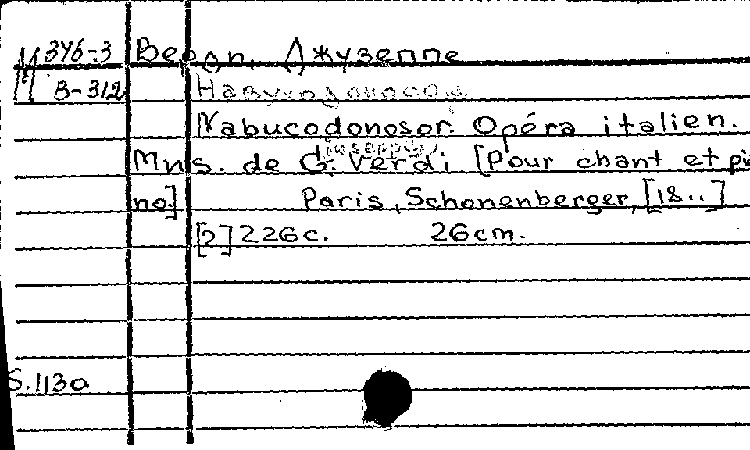 М 376-3 Верди, Джузеппе
В-312 Навуходоносор
Nabucodonosor. Opéra italien.
(Giuseppe)
Mus. de G. Verdi [Pour chant et pia
no] Paris, Schonenberger, [18..]
[2] 226 c. 26 cm.
S.113a